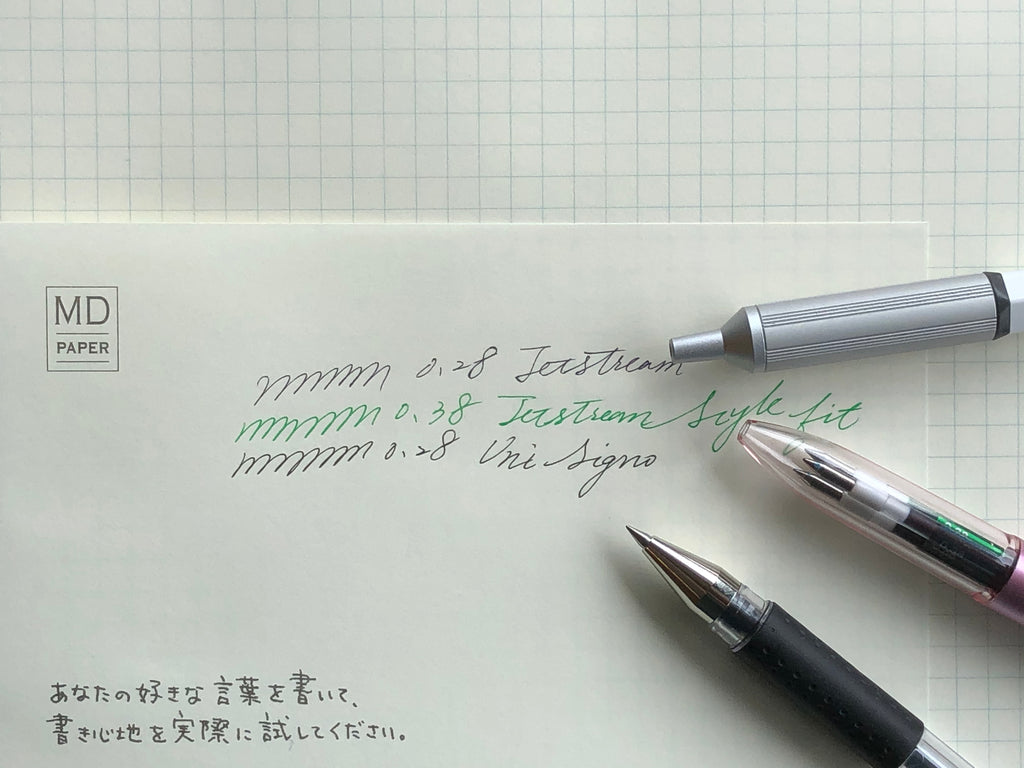 MD
PAPER
0.28 Jetstream
0.38 Jetstream Style fit
0.28 Uni Signo
あなたの好きな言葉を書いて、
書き心地を実際に試してください。